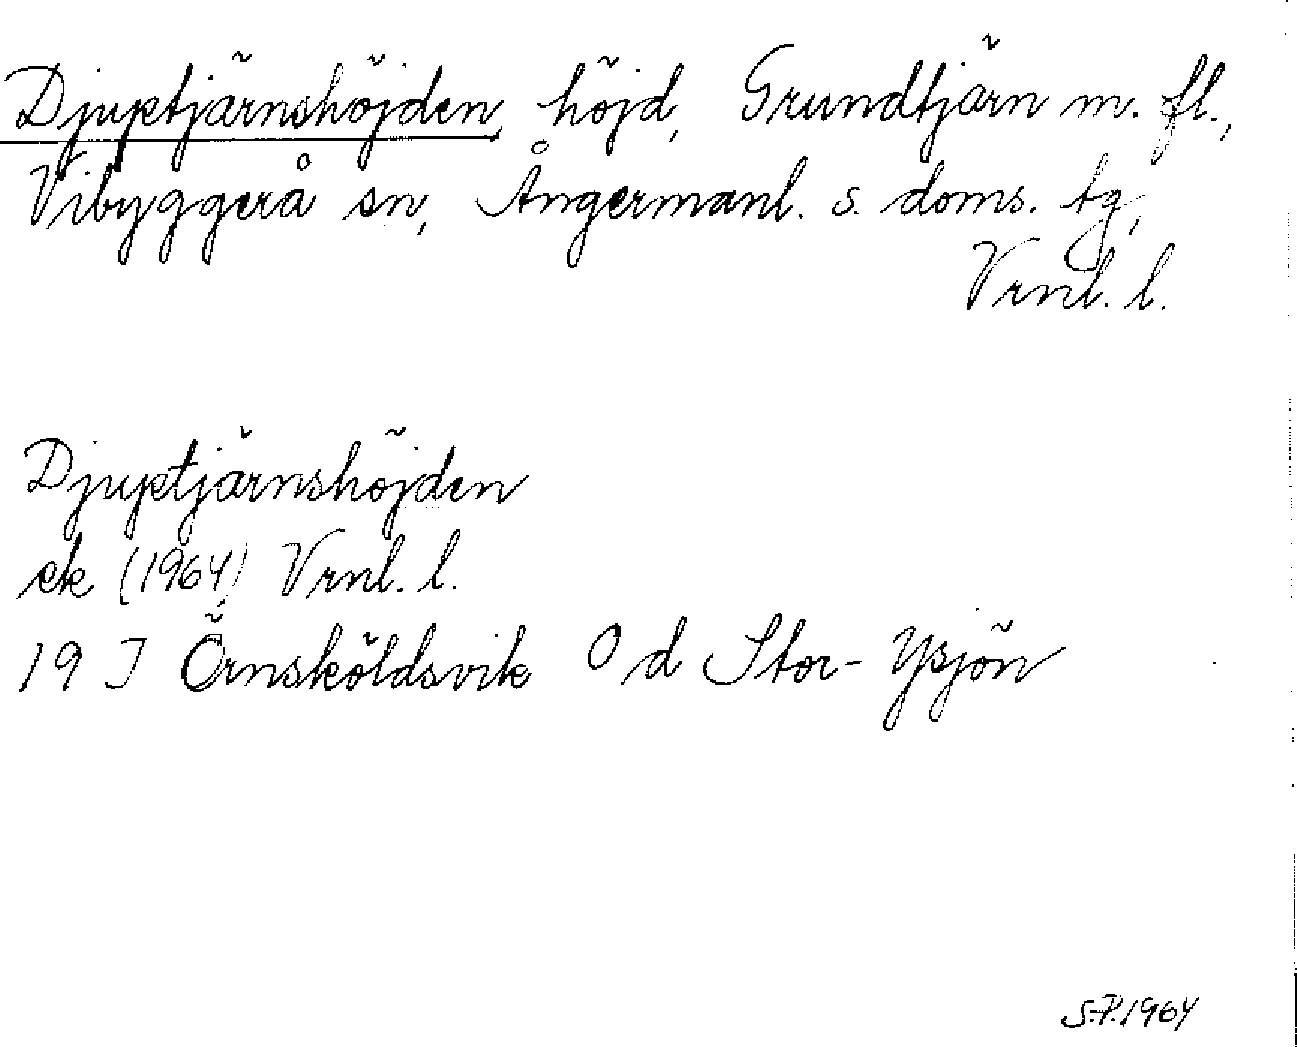 Djuptjärnshöjden, höjd, Grundtjärn m. fl.,
Vibyggerå sn, Ångermanl. s. doms. tg,
Vrnl. l.
Djuptjärnshöjden
ek (1964) Vrnl. l.
19 J Örnsköldsvik O d Stor-Ysjön
S.P. 1964